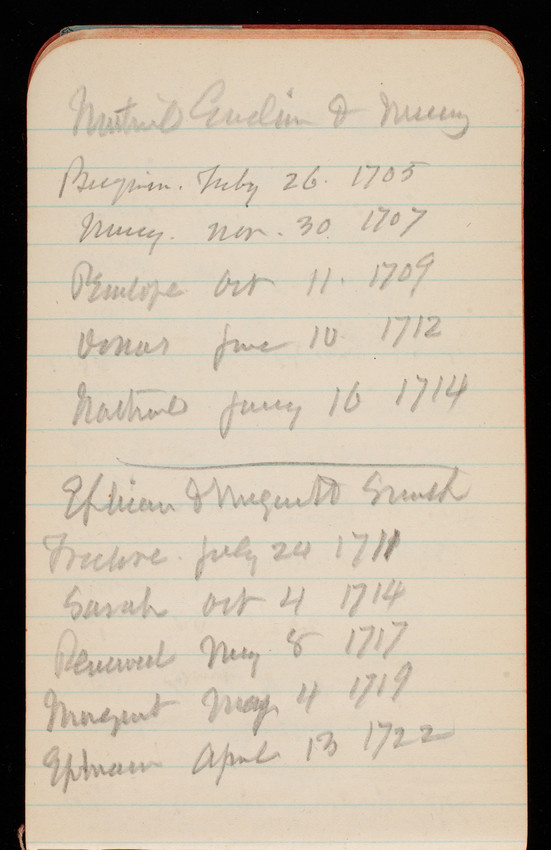 & Mercy
Benjamin. Feby 26. 1705
Mercy. Nov. 30. 1707
Penelope Oct 11. 1709
June 10 1712
Jany 16 1714
Ephraim & Margarett Smith
Freelove. July 24 1711
Sarah Oct 4 1714
May 8 1717
Margaret May 4 1719
Ephraim April 13 1722